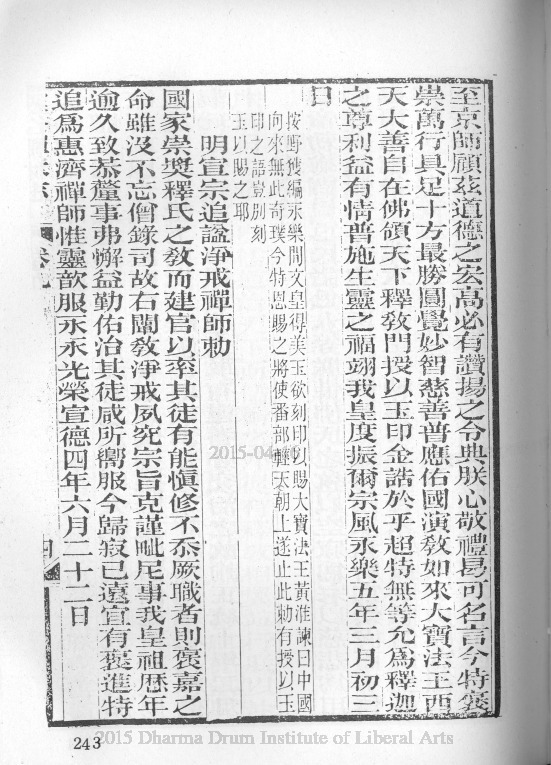 至京師顧茲道德之宏高必有讚揚之令典朕心敬禮曷可名言今特褒
崇萬行具足十方最勝圓覺妙智慈善普應佑國演教如來大寶法王西
天大善自在佛領天下釋教門授以玉印金誥於乎超特無等允為釋迦
之尊利益有情普施生靈之福翊我皇度振爾宗風永樂五年三月初三
日
按野獲編永樂間文皇得美玉欲刻印以賜大寶法王黃淮諫曰中國
向來無此奇璞今特恩賜之將使番部輕天朝上遂止此勅有授以玉
印之語豈別刻
玉以賜之耶
明宣宗追諡淨戒禪師勅
國家崇獎釋氏之教而建官以率其徒有能慎修不忝厥職者則褒嘉之
命雖沒不忘僧錄司故右闡教淨戒夙究宗旨克謹毗尼事我皇祖歷年
逾久致恭釐事弗懈益勤佑治其徒咸所嚮服今歸寂已遠宜有褒進特
追為惠濟禪師惟靈歆服永永光榮宣德四年六月二十二日
卷九
四
243
2015-04
2015 Dharma Drum Institute of Liberal Arts